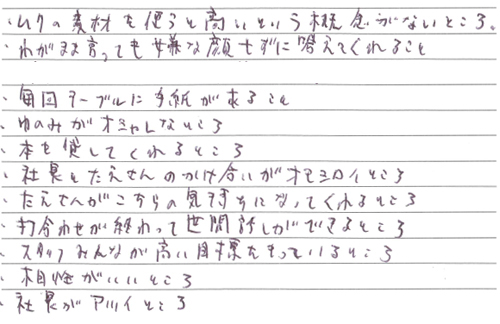 ・ムクの素材を使うと高いという概念がないところ。
・わがまま言っても嫌な顔せずに答えてくれること
・毎回テーブルに手紙が来ること
・ゆのみがオシャレなところ
・本を貸してくれるところ
・社長とたえさんのかけ合いがオモシロイところ
・たえさんがこちらの気持ちになってくれるところ
・打合わせが終わって世間話しができるところ
・スタッフみんなが高い目標をもっているところ
・相性がいいところ
・社長がアツイところ